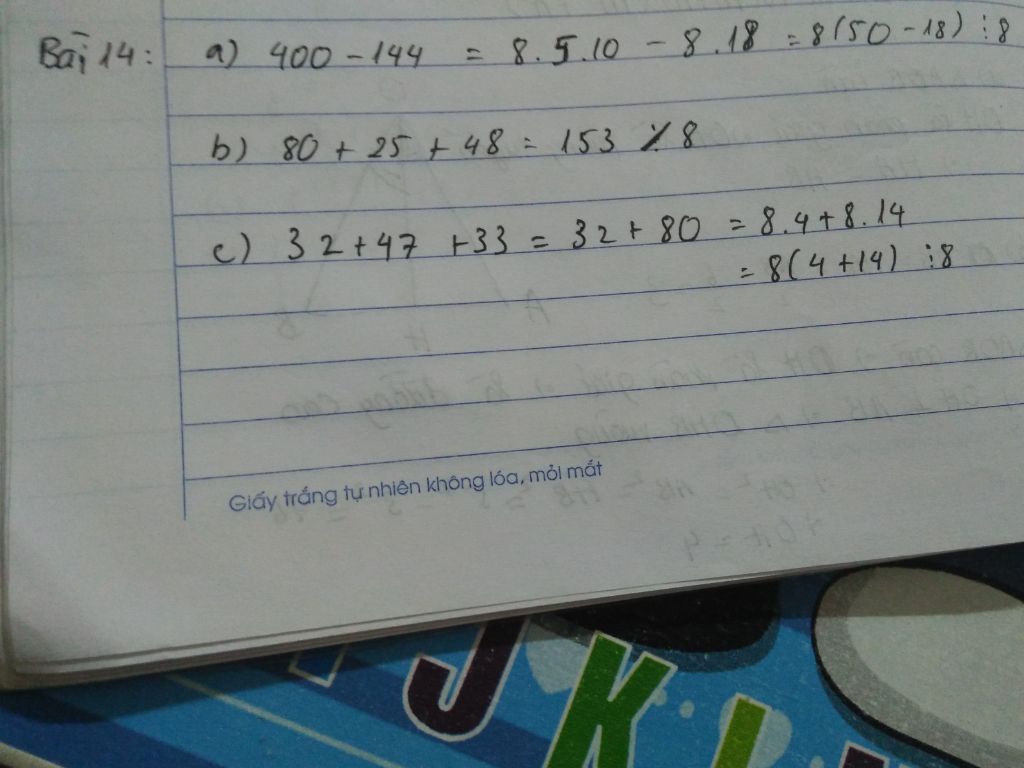 Bài 14: a) 400 - 144 = 8.5.10 - 8.18 = 8(50 - 18) ⋮ 8
b) 80 + 25 + 48 = 153 ⋮̸ 8
c) 32 + 47 + 33 = 32 + 80 = 8.4 + 8.14
= 8(4 + 14) ⋮ 8
Giấy trắng tự nhiên không lóa, mỏi mắt
JKL